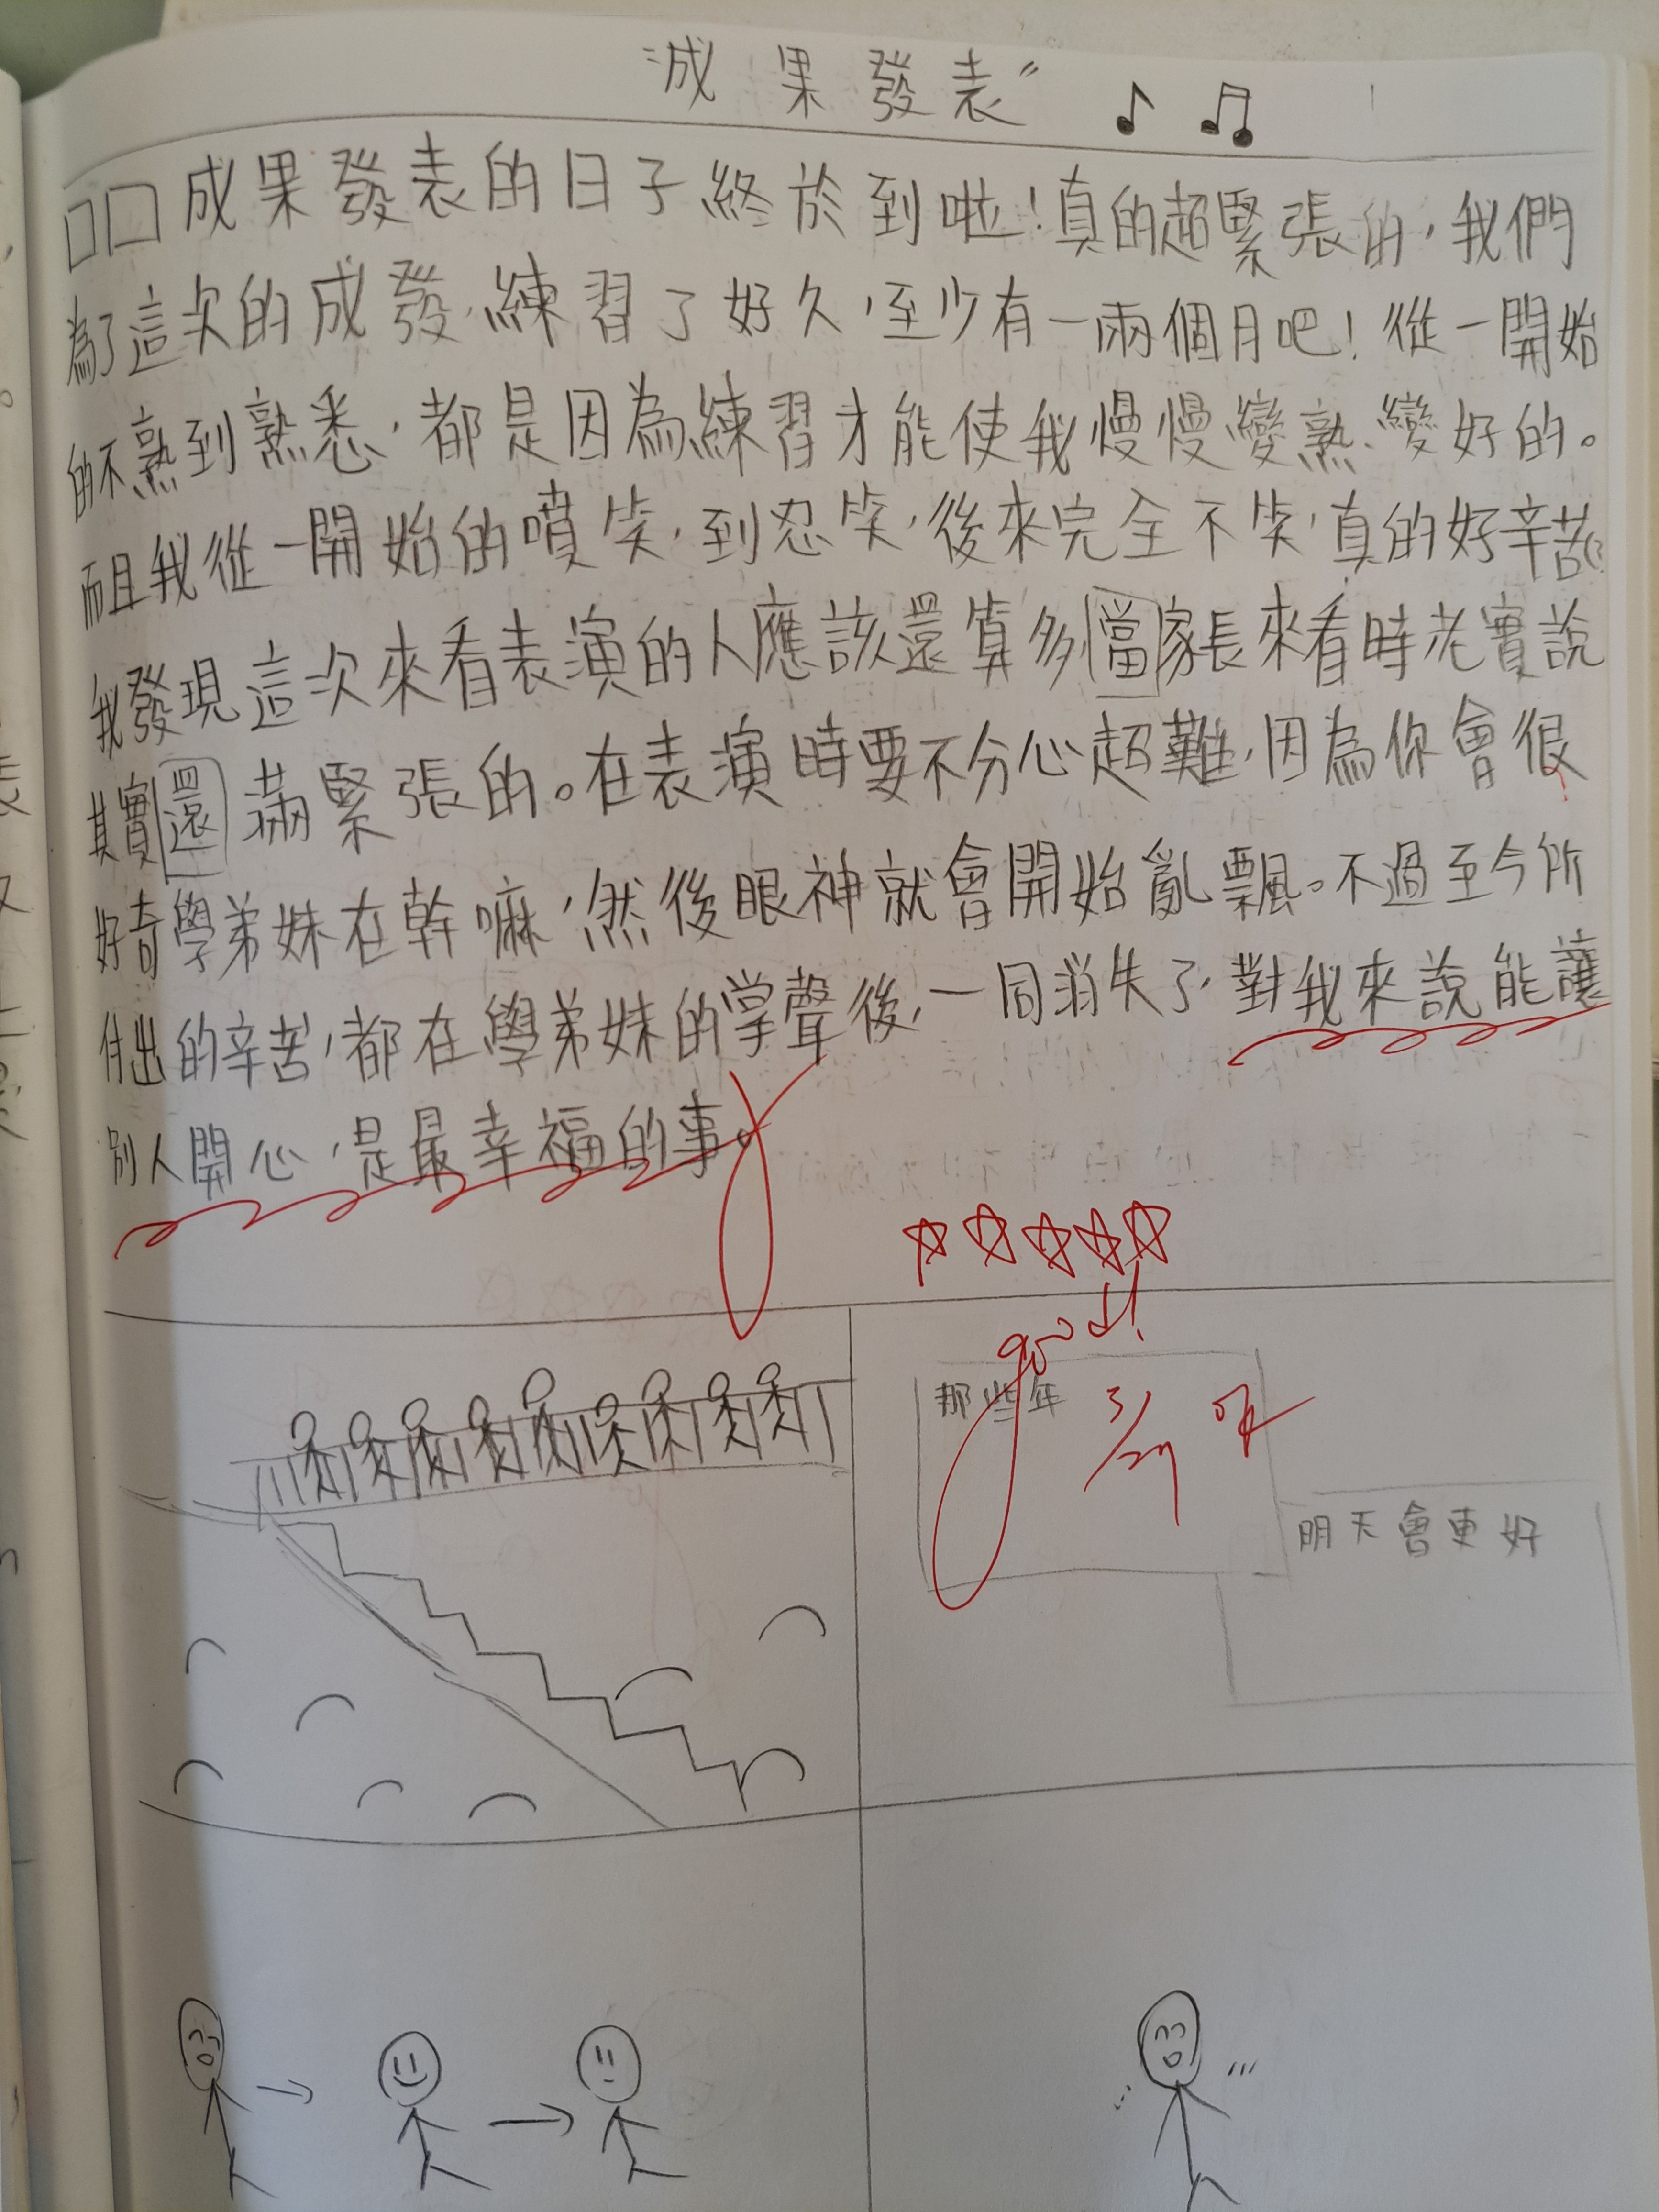 "成果發表"
成果發表的日子終於到啦！真的超緊張的，我們
為了這次的成發，練習了好久，至少有一兩個月吧！從一開始
的不熟到熟悉，都是因為練習才能使我慢慢變熟、變好的。
而且我從一開始的噴笑，到忍笑，後來完全不笑，真的好辛苦。
我發現這次來看表演的人應該還算多，當家長來看時老實說
其實還滿緊張的。在表演時要不分心超難，因為你會很
好奇學弟妹在幹嘛，然後眼神就會開始亂飄。不過至今所
付出的辛苦，都在學弟妹的掌聲後，一同消失了，對我來說能讓
別人開心，是最幸福的事。
good!
那些年
明天會更好